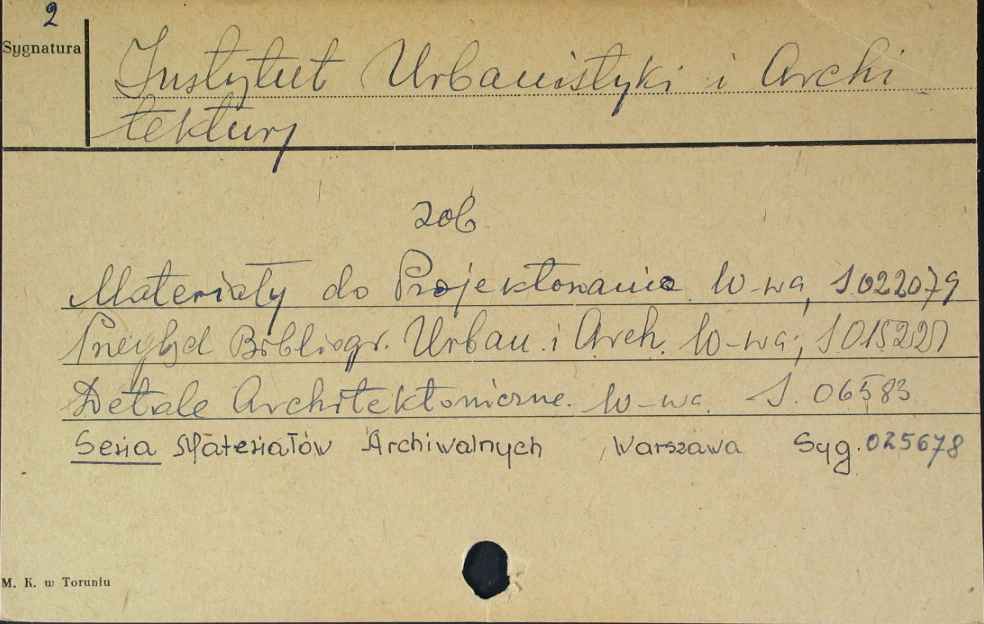 2
Sygnatura
Instytut Urbanistyki i Archi
tektury
zob.
Materiały do Projektowania W-wa, S.022079
Przegląd Bibliogr. Urban. i Arch. W-wa,
Detale Architektoniczne. W-wa. S. 06583
Seria Materiałów Archiwalnych Warszawa Syg. 025678
M. K. w Toruniu